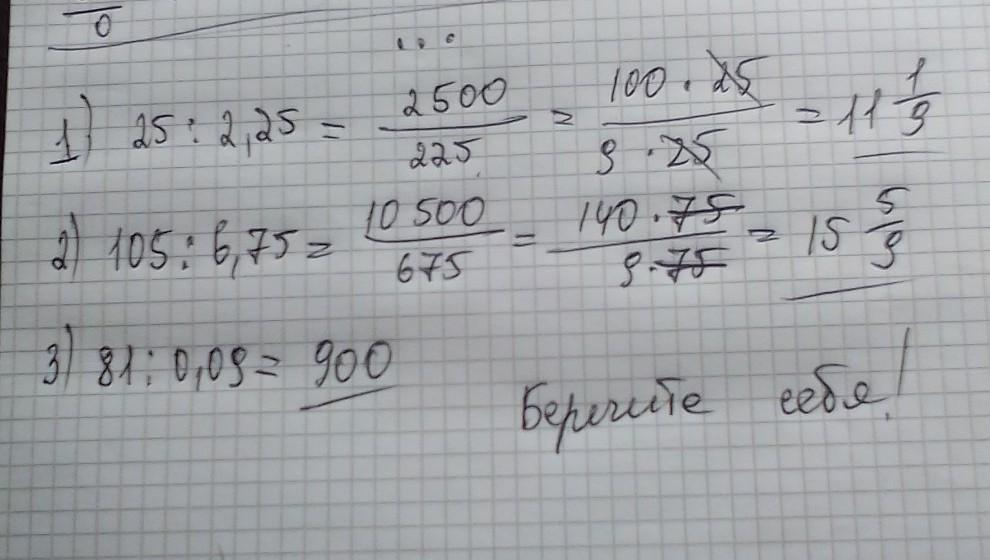 0
...
1) 25 : 2,25 = 2500/225 = 100 · 25/9 · 25 = 11 1/9
2) 105 : 6,75 = 10 500/675 = 140 · 75/9 · 75 = 15 5/9
3) 81 : 0,09 = 900
Берегите себя!